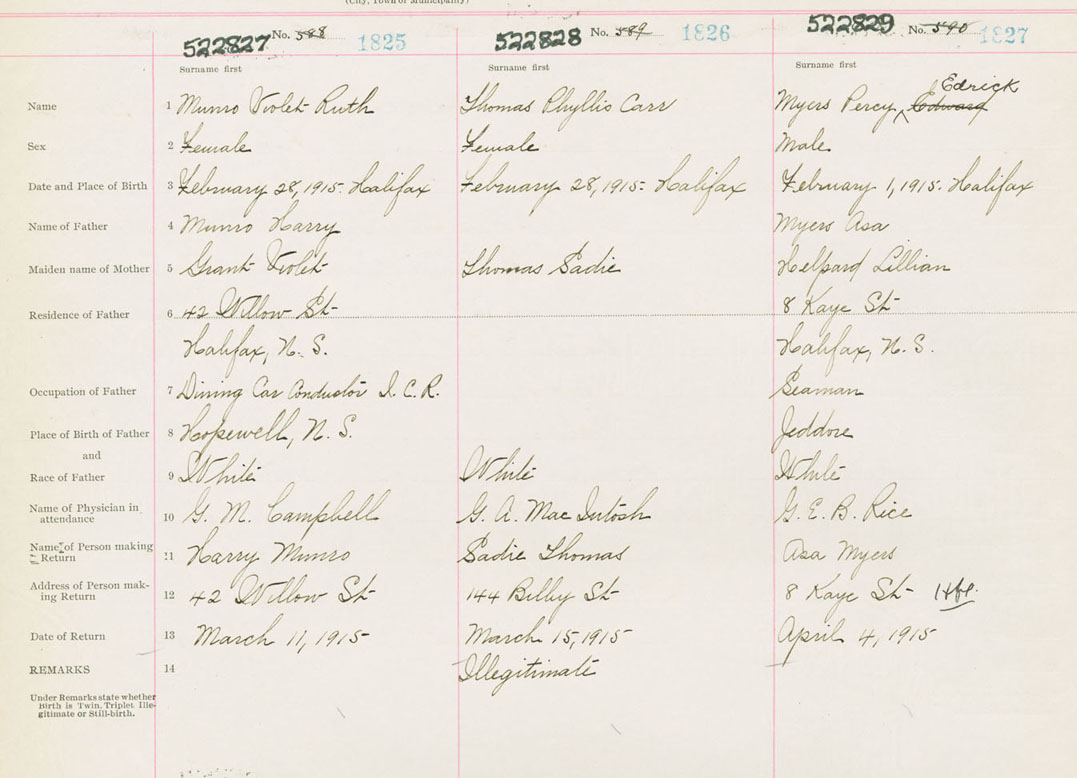 (City, Town or Municipality)
522827 No. 588 1825 522828 No. 589 1826 522829 No. 590 1827
Surname first Surname first Surname first
Edrick
Name 1 Munro Violet Ruth Thomas Phyllis Carr Myers Percy, Edward
Sex 2 Female Female Male
Date and Place of Birth 3 February 28, 1915. Halifax February 28, 1915. Halifax February 1, 1915. Halifax
Name of Father 4 Munro Harry Myers Asa
Maiden name of Mother 5 Grant Violet Thomas Sadie Helpard Lillian
Residence of Father 6 42 Willow St 8 Kaye St
Halifax, N. S. Halifax, N. S.
Occupation of Father 7 Dining Car Conductor I. C. R. Seaman
Place of Birth of Father 8 Hopewell, N. S. Jeddore
and
Race of Father 9 White White White
Name of Physician in
attendance 10 G. M. Campbell G. A. Mac Intosh G. E. B. Rice
Name of Person making
Return 11 Harry Munro Sadie Thomas Asa Myers
Address of Person mak-
ing Return 12 42 Willow St 144 Bilby St 8 Kaye St Hfx.
Date of Return 13 March 11, 1915 March 15, 1915 April 4, 1915
REMARKS 14 Illegitimate
Under Remarks state whether
Birth is Twin, Triplet, Ille-
gitimate or Still-birth.